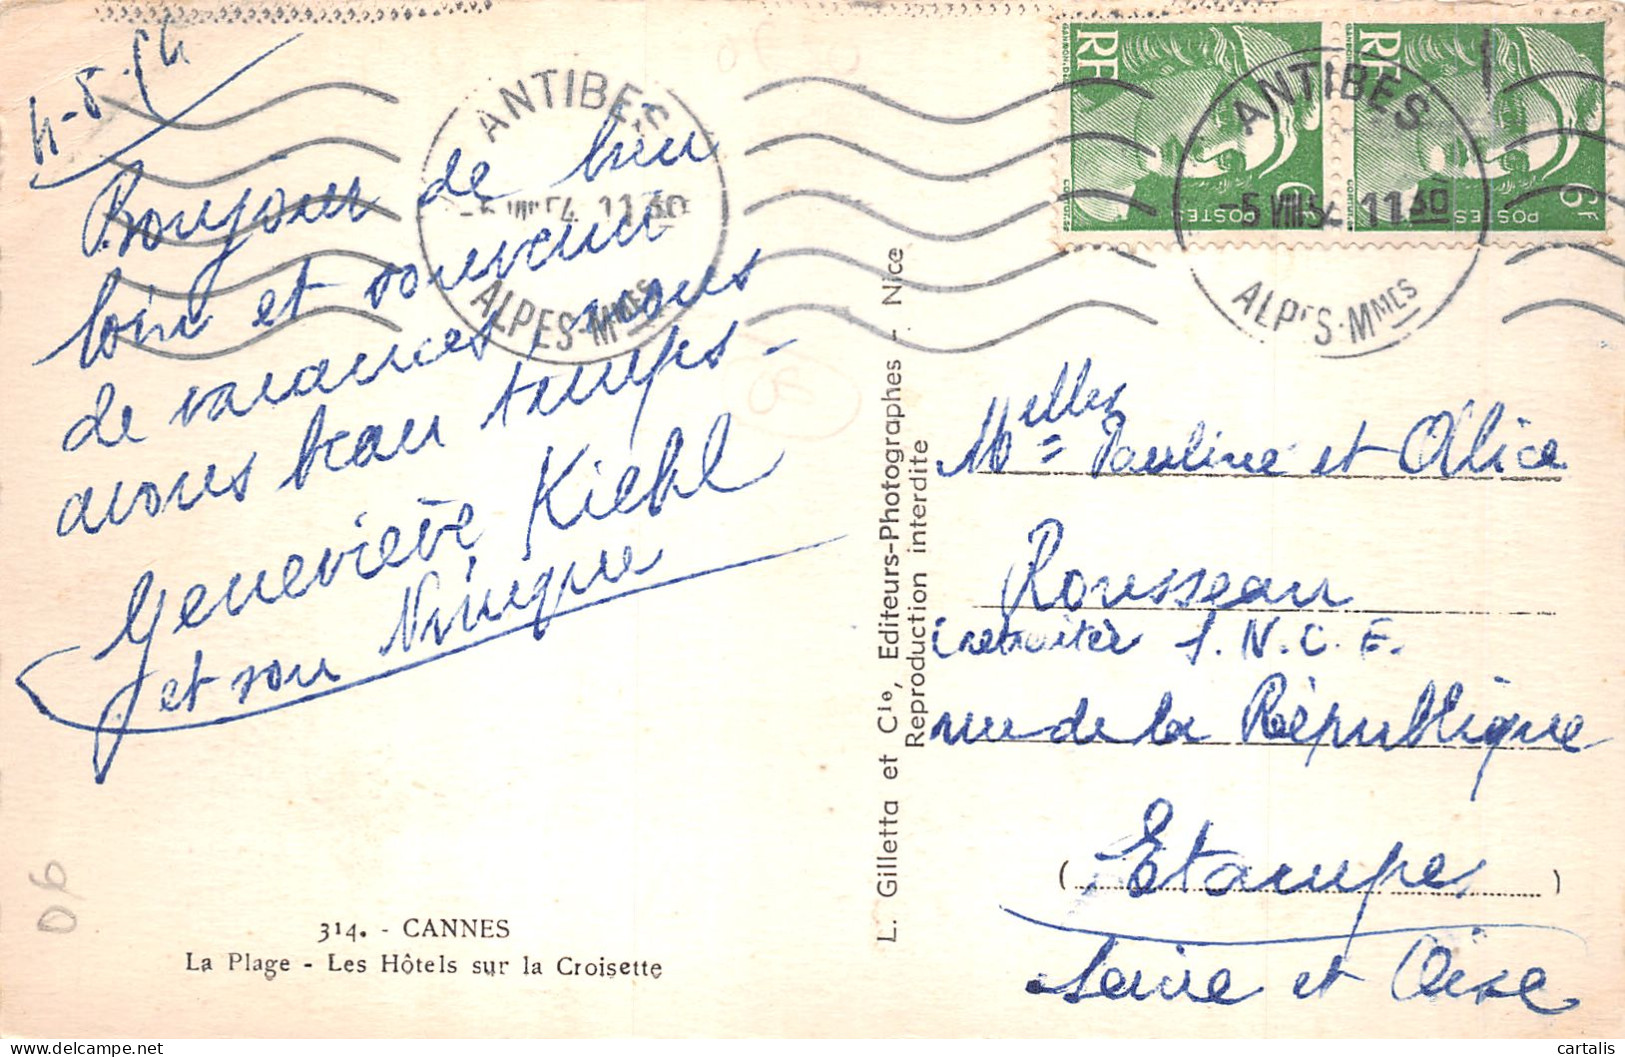 4-8-54
Bonjour de bien
loin et souvenir
de vacances nous
avons beau temps -
Geneviève Kiehl
et son
314. - CANNES
La Plage - Les Hôtels sur la Croisette
L. Gilletta et Cie, Editeurs-Photographes - Nice
Reproduction interdite
ANTIBES
-5 VIII 54 11 30
ALPES-MMES
RF
POSTES
RF
6F
POSTES
ANTIBES
-5 VIII 54 11 30
ALPES-MMES
Melles Pauline et Alice
Rousseau
S.N.C.F.
rue de la République
(Etampes)
Seine et Oise
06
cartalis
delcampe.net